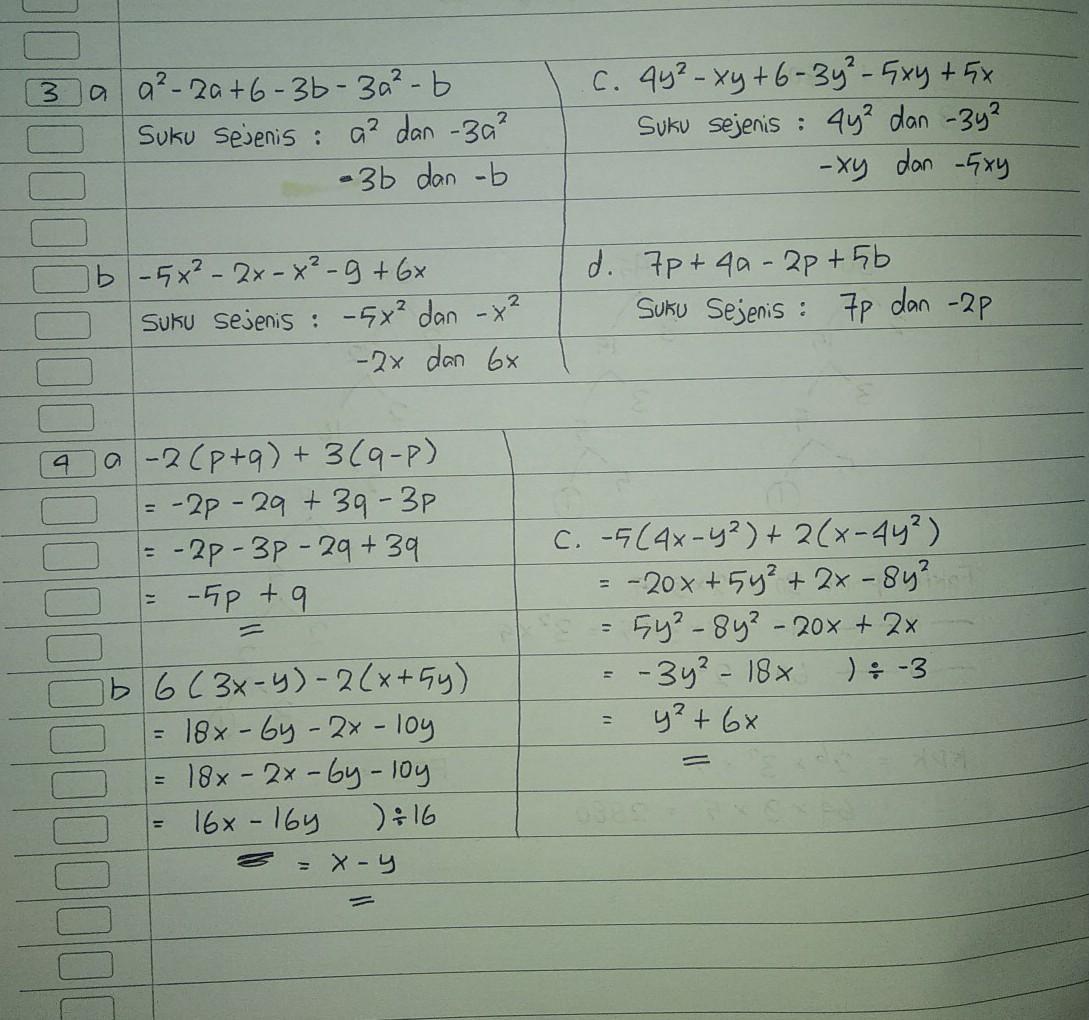 3 a a² - 2a + 6 - 3b - 3a² - b
Suku Sejenis : a² dan -3a²
-3b dan -b
b -5x² - 2x - x² - 9 + 6x
Suku Sejenis : -5x² dan -x²
-2x dan 6x
C. 4y² - xy + 6 - 3y² - 5xy + 5x
Suku Sejenis : 4y² dan -3y²
-xy dan -5xy
d. 7p + 4a - 2p + 5b
Suku Sejenis : 7p dan -2p
4 a -2(p+q) + 3(q-p)
= -2p - 2q + 3q - 3p
= -2p - 3p - 2q + 3q
= -5p + q
b 6(3x-y) - 2(x+5y)
= 18x - 6y - 2x - 10y
= 18x - 2x - 6y - 10y
= 16x - 16y ) ÷ 16
= x - y
C. -5(4x-y²) + 2(x-4y²)
= -20x + 5y² + 2x - 8y²
= 5y² - 8y² - 20x + 2x
= -3y² - 18x ) ÷ -3
= y² + 6x